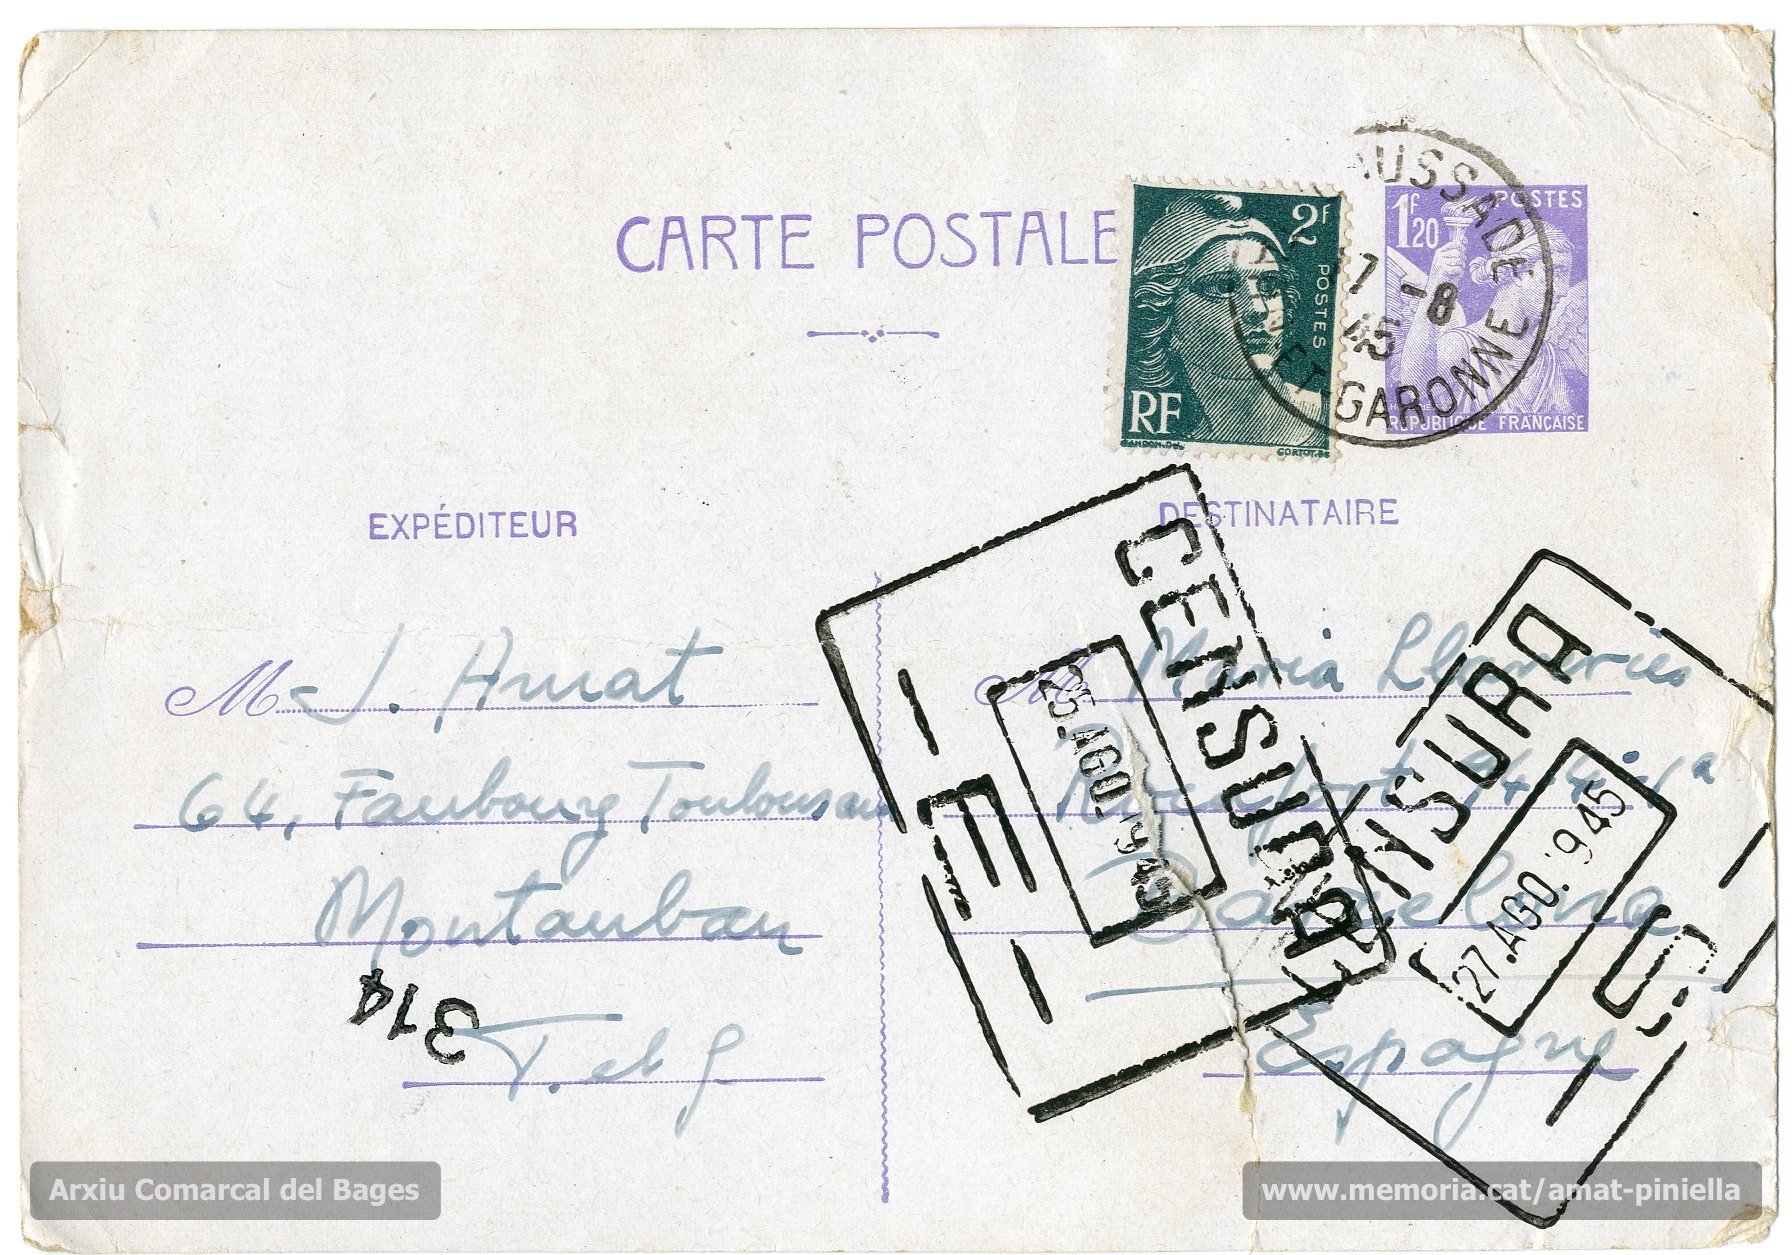 CARTE POSTALE
2F
POSTES
RF
GANDON.DEL
CORTOT.SC
1F20
POSTES
REPUBLIQUE FRANÇAISE
AUSSADE
7 -8
45
ET-GARONNE
EXPÉDITEUR
DESTINATAIRE
M J. Amat
64, Faubourg Toulousain
Montauban
T. et G
314
M Maria
Rocafort
Barcelona
Espagne
CENSURA
25.AGO.1945
CENSURA
27.AGO.1945
Arxiu Comarcal del Bages
www.memoria.cat/amat-piniella